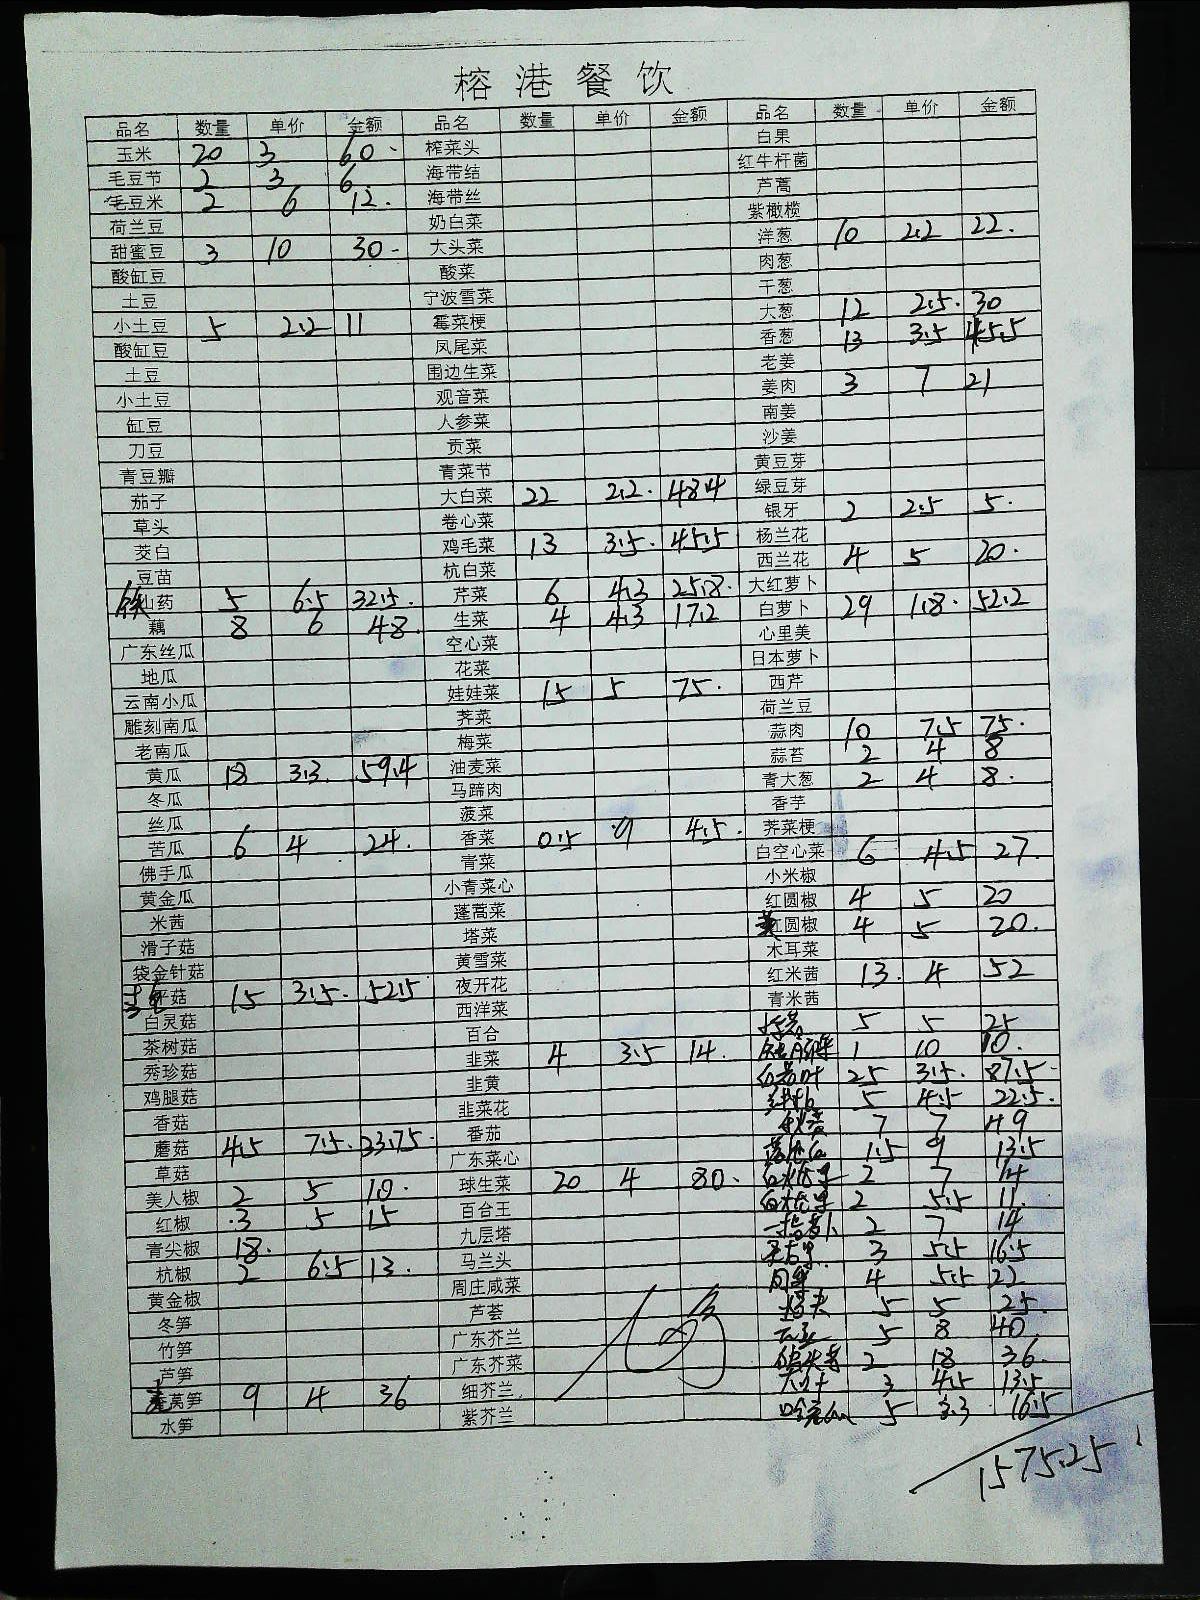 榕港餐饮
品名 数量 单价 金额 品名 数量 单价 金额 品名 数量 单价 金额
玉米 20 3 60 榨菜头 白果
毛豆节 2 3 6 海带结 红牛杆菌
毛豆米 2 6 12 海带丝 芦蒿
荷兰豆 奶白菜 紫橄榄
甜蜜豆 3 10 30 大头菜 洋葱 10 2.2 22
酸缸豆 酸菜 肉葱
土豆 宁波雪菜 干葱
小土豆 5 2.2 11 霉菜梗 大葱 12 2.5 30
酸缸豆 凤尾菜 香葱 13 3.5 45.5
土豆 围边生菜 老姜
小土豆 观音菜 姜肉 3 7 21
缸豆 人参菜 南姜
刀豆 贡菜 沙姜
青豆瓣 青菜节 黄豆芽
茄子 大白菜 22 2.2 48.4 绿豆芽
草头 卷心菜 银牙 2 2.5 5
茭白 鸡毛菜 13 3.5 45.5 杨兰花
豆苗 杭白菜 西兰花 4 5 20
铁山药 5 6.5 32.5 芹菜 6 4.3 25.8 大红萝卜
藕 8 6 48 生菜 4 4.3 17.2 白萝卜 29 1.8 52.2
广东丝瓜 空心菜 心里美
地瓜 花菜 日本萝卜
云南小瓜 娃娃菜 15 5 75 西芹
雕刻南瓜 荠菜 荷兰豆
老南瓜 梅菜 蒜肉 10 7.5 75
黄瓜 18 3.3 59.4 油麦菜 蒜苔 2 4 8
冬瓜 马蹄肉 青大葱 2 4 8
丝瓜 菠菜 香芋
苦瓜 6 4 24 香菜 0.5 9 4.5 荠菜梗
佛手瓜 青菜 白空心菜 6 4.5 27
黄金瓜 小青菜心 小米椒
米茜 蓬蒿菜 红圆椒 4 5 20
滑子菇 塔菜 黄圆椒 4 5 20
袋金针菇 黄雪菜 木耳菜
平菇 15 3.5 52.5 夜开花 红米茜 13 4 52
白灵菇 西洋菜 青米茜
茶树菇 百合 5 5 25
秀珍菇 韭菜 4 3.5 14 1 10 10
鸡腿菇 韭黄 25 3.5 87.5
香菇 韭菜花 5 4.5 22.5
蘑菇 4.5 7.5 33.75 番茄 7 7 49
草菇 广东菜心 1.5 9 13.5
美人椒 2 5 10 球生菜 20 4 80 2 7 14
红椒 3 5 15 百合王 2 5.5 11
青尖椒 18 九层塔 2 7 14
杭椒 2 6.5 13 马兰头 3 5.5 16.5
黄金椒 周庄咸菜 4 5.5 22
冬笋 芦荟 5 5 25
竹笋 广东芥兰 5 8 40
芦笋 广东芥菜 2 18 36
莴笋 9 4 36 细芥兰 3 4.5 13.5
水笋 紫芥兰 5 3.3 16.5
1575.25